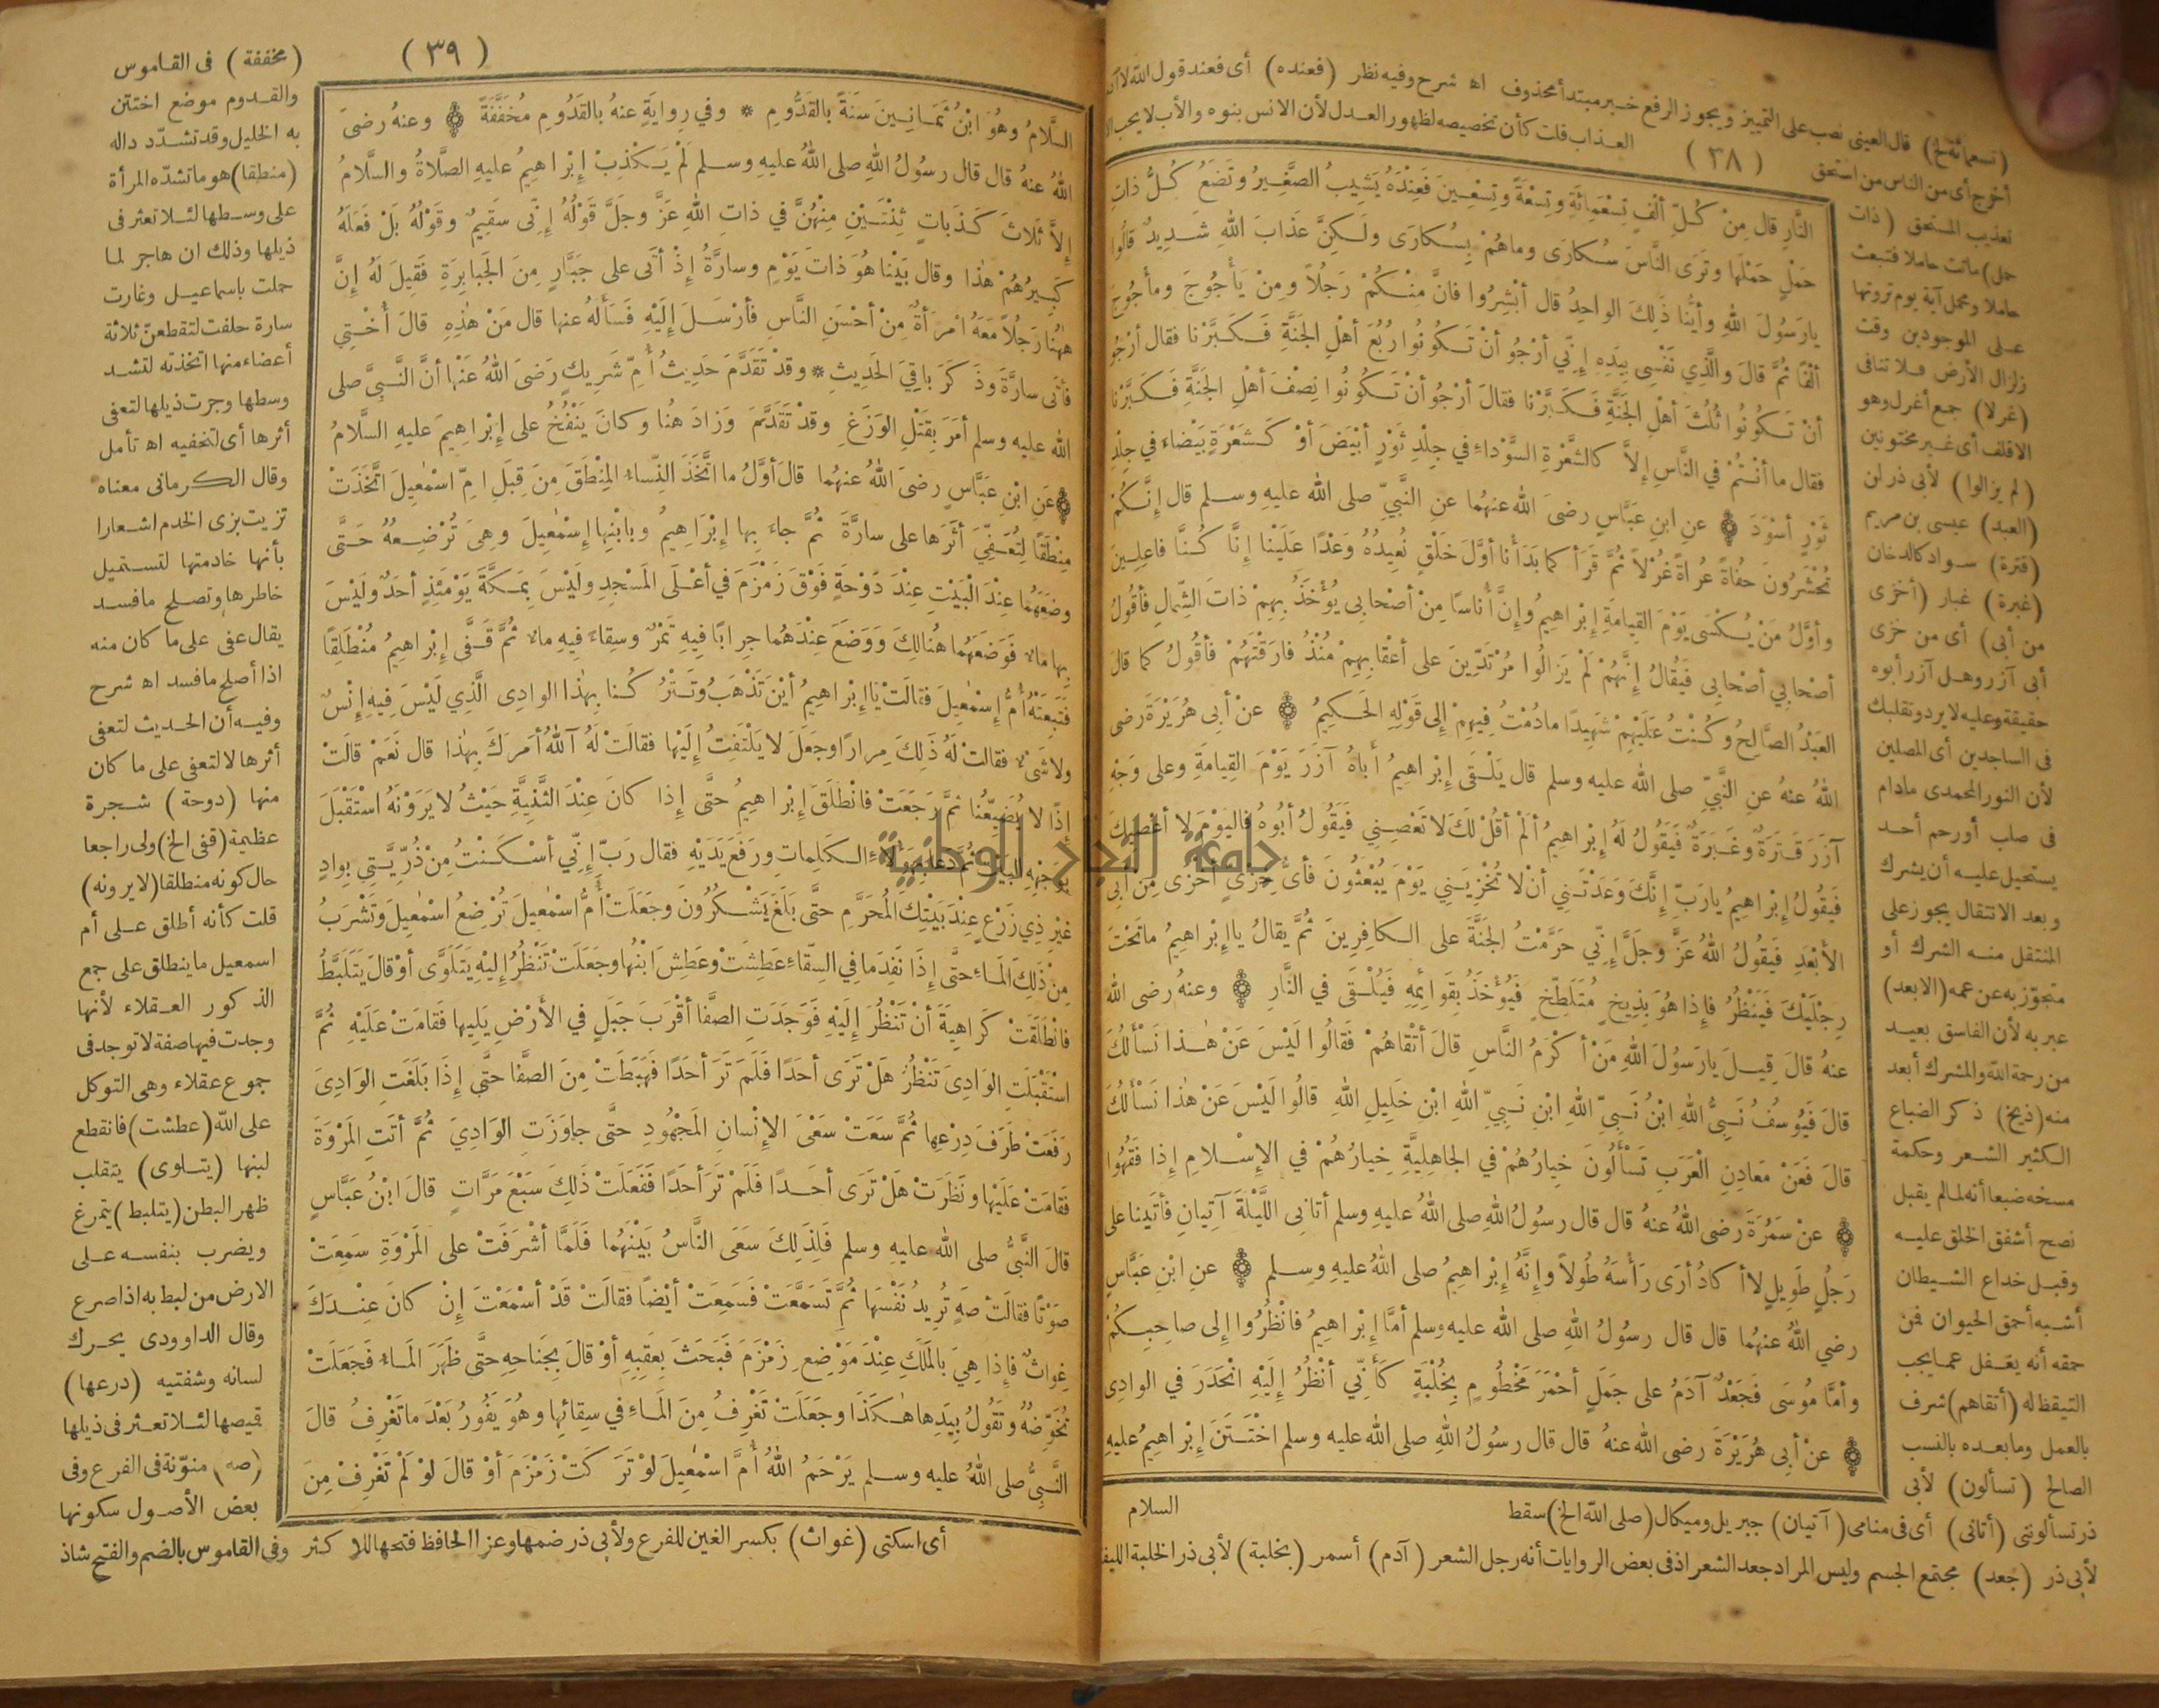 (تسعمائة الخ) قال العينى نصب على التمييز ويجوز الرفع خبر مبتدأ محذوف اه شرح وفيه نظر (فعنده) أى فعند قول الله لآدم
أخرج أى من الناس من استحق
العذاب قلت كأن تخصيصه لظهور العدل لأن الانس بنوه والأب لا يحب
(٣٨)
النَّارِ قال مِنْ كُلِّ ألْفٍ تِسْعَمِائَةٍ وتِسْعَةً وتِسْعِينَ فَعِنْدَهُ يَشِيبُ الصَّغِيرُ وتَضَعُ كُلُّ ذاتِ
حَمْلٍ حَمْلَها وتَرَى النَّاسَ سُكارَى وماهُمْ بِسُكارَى ولَكِنَّ عَذَابَ اللهِ شَدِيدٌ قالُوا
يارَسُولَ اللهِ وأيُّنا ذَلِكَ الواحِدُ قال أبْشِرُوا فانَّ مِنْكُمْ رَجُلًا ومِنْ يَأْجُوجَ ومأْجُوجَ
ألْفًا ثُمَّ قالَ والَّذِي نَفْسِى بِيَدِهِ إِنِّي أرْجُو أنْ تَكُونُوا رُبُعَ أهْلِ الجَنَّةِ فَكَبَّرْنا فقال أرْجُو
أنْ تَكُونُوا ثُلُثَ أهْلِ الجَنَّةِ فَكَبَّرْنا فقالَ أرْجُو أنْ تَكُونُوا نِصْفَ أهْلِ الجَنَّةِ فَكَبَّرْنا
فقال ما أنْتُمْ في النَّاسِ إِلاَّ كالشَّعْرَةِ السَّوْداءِ في جِلْدِ ثَوْرٍ أبْيَضَ أوْ كَشَعْرَةٍ بَيْضاءَ في جِلْدِ
ثَوْرٍ أسْوَدَ ۞ عنِ ابنِ عَبَّاسٍ رضىَ الله عنهُما عنِ النَّبيِّ صلى الله عليهِ وسلم قال إنَّكُمْ
تُحْشَرُونَ حُفاةً عُراةً غُرْلاً ثُمَّ قَرَأَ كما بَدَأْنا أوَّلَ خَلْقٍ نُعِيدُهُ وَعْدًا عَلَيْنا إنَّا كُنَّا فاعِلِينَ
وأوَّلُ مَنْ يُكْسَى يَوْمَ القِيامَةِ إبْراهِيمُ وإنَّ أُناسًا مِنْ أصْحابِى يُؤْخَذُ بِهِمْ ذاتَ الشِّمالِ فأقُولُ
أصْحابِي أصْحابِى فَيُقالُ إنَّهُمْ لَمْ يَزالُوا مُرْتَدِّينَ على أعْقابِهِمْ مُنْذُ فارَقْتَهُمْ فأقُولُ كما قالَ
العَبْدُ الصَّالِحُ وكُنْتُ عَلَيْهِمْ شَهِيدًا مادُمْتُ فِيهِمْ إلى قَوْلِهِ الحَكِيمُ ۞ عنْ أبِى هُرَيْرَةَ رضى
اللهُ عنهُ عنِ النَّبيِّ صلى الله عليه وسلم قال يَلْقَى إبْراهِيمُ أَباهُ آزَرَ يَوْمَ القِيامَةِ وعلى وَجْهِ
آزَرَ قَتَرَةٌ وغَبَرَةٌ فَيَقُولُ لَهُ إبْراهِيمُ ألَمْ أقُلْ لَكَ لاتَعْصِنِي فَيَقُولُ أبُوهُ فالْيَوْمَ لا أعْصِيكَ
فَيَقُولُ إبْراهِيمُ يارَبِّ إنَّكَ وَعَدْتَنِي أنْ لا تُخْزِيَنِي يَوْمَ يُبْعَثُونَ فأىُّ خِزْيٍ أخْزَى مِنْ أبِى
الأبْعَدِ فَيَقُولُ اللهُ عَزَّ وجَلَّ إنِّي حَرَّمْتُ الجَنَّةَ على الكافِرِينَ ثُمَّ يقالُ ياإبْراهِيمُ ماتَحْتَ
رِجْلَيْكَ فَيَنْظُرُ فإذا هُوَ بِذِيخٍ مُتَلَطِّخٍ فَيُؤْخَذُ بِقَوائِمِهِ فَيُلْقَى في النَّارِ ۞ وعنهُ رضى الله
عنهُ قالَ قِيلَ يارَسُولَ اللهِ مَنْ أكْرَمُ النَّاسِ قالَ أتْقاهُمْ فَقالُوا لَيْسَ عَنْ هٰذا نَسْألُكَ
قالَ فَيُوسُفُ نَبِىُّ اللهِ ابْنُ نَبِىِّ اللهِ ابْنِ نَبِىِّ اللهِ ابْنِ خَلِيلِ اللهِ قالُوا لَيْسَ عَنْ هٰذا نَسْألُكَ
قالَ فَعَنْ مَعادِنِ الْعَرَبِ تَسْأَلُونَ خِيارُهُمْ في الجاهِلِيَّةِ خِيارُهُمْ في الإسْلامِ إذا فَقُهُوا
۞ عنْ سَمُرَةَ رضى اللهُ عنهُ قال قال رسُولُ اللهِ صلى اللهُ عليهِ وسلم أتانِى اللَّيْلَةَ آتِيانِ فأتَيْنا على
رَجُلٍ طَوِيلٍ لا أكادُ أرَى رَأْسَهُ طُولاً وإنَّهُ إبْراهِيمُ صلى اللهُ عليهِ وسلم ۞ عنِ ابْنِ عَبَّاسٍ
رضي اللهُ عنهُما قال قال رسُولُ اللهِ صلى الله عليه وسلم أمَّا إبْراهِيمُ فانْظُرُوا إلى صاحِبِكُمْ
وأمَّا مُوسَى فَجَعْدٌ آدَمُ على جَمَلٍ أحْمَرَ مَخْطُومٍ بِخُلْبَةٍ كَأنِّي أنْظُرُ إلَيْهِ انْحَدَرَ في الوادِى
۞ عنْ أبِى هُرَيْرَةَ رضى الله عنهُ قال قال رسُولُ اللهِ صلى الله عليه وسلم اخْتَتَنَ إبْراهِيمُ عليهِ
السلام
تعذيب المستحق (ذات
حمل) ماتت حاملا فتبعث
حاملا ومحمل آية يوم ترونها
على الموجودين وقت
زلزال الأرض فلا تنافى
(غرلا) جمع أغرل وهو
الاقلف أى غير مختونين
(لم يزالوا) لأبى ذر لن
(العبد) عيسى بن مريم
(قترة) سواد كالدخان
(غبرة) غبار (أخزى
من أبى) أى من خزى
أبى آزر وهل آزر أبوه
حقيقة وعليه لا يرد وتقلبك
فى الساجدين أى المصلين
لأن النور المحمدى مادام
فى صلب أو رحم أحد
يستحيل عليه أن يشرك
وبعد الانتقال يجوز على
المنتقل منه الشرك أو
متجوّز به عن عمه (الابعد)
عبر به لأن الفاسق بعيد
من رحمة اللّٰه والمشرك أبعد
منه (ذيخ) ذكر الضباع
الكثير الشعر وحكمة
مسخه ضبعا أنه لما لم يقبل
نصح أشفق الخلق عليه
وقبل خداع الشيطان
أشبه أحمق الحيوان فمن
حمقه أنه يغفل عما يجب
التيقظ له (أتقاهم) شرف
بالعمل وما بعده بالنسب
الصالح (تسألون) لأبى
ذر تسألوننى (أتانى) أى فى منامى (آتيان) جبريل وميكال (صلى اللّٰه الخ) سقط
لأبى ذر (جعد) مجتمع الجسم وليس المراد جعد الشعر اذ فى بعض الروايات أنه رجل الشعر (آدم) أسمر (بخلبة) لأبى ذر الخلبة الليف
(٣٩)
السَّلامُ وهُوَ ابْنُ ثَمانِينَ سَنَةً بالقَدُّومِ * وفي رِوايَةٍ عنهُ بالقَدُومِ مُخَفَّفَةً ۞ وعنهُ رضىَ
اللهُ عنهُ قال قال رسُولُ اللهِ صلى اللهُ عليهِ وسلم لَمْ يَكْذِبْ إبْراهِيمُ عليهِ الصَّلاةُ والسَّلامُ
إلاَّ ثَلاثَ كَذَباتٍ ثِنْتَيْنِ مِنْهُنَّ في ذاتِ اللهِ عَزَّ وجَلَّ قَوْلُهُ إنِّى سَقِيمٌ وقَوْلُهُ بَلْ فَعَلَهُ
كَبِيرُهُمْ هٰذا وقال بَيْنا هُوَ ذاتَ يَوْمٍ وسارَّةُ إذْ أتَى على جَبَّارٍ مِنَ الجَبابِرَةِ فَقِيلَ لَهُ إنَّ
هٰهُنا رَجُلاً مَعَهُ امْرَأةٌ مِنْ أحْسَنِ النَّاسِ فأرْسَلَ إلَيْهِ فَسَألَهُ عنها قال مَنْ هٰذِهِ قالَ أُخْتِى
فأتَى سارَّةَ وذَكَرَ باقِيَ الحَدِيثِ * وقدْ تَقَدَّمَ حَدِيثُ أُمِّ شَرِيكٍ رَضىَ اللهُ عَنْها أنَّ النَّبِىَّ صلى
الله عليه وسلم أمَرَ بِقَتْلِ الوَزَغِ وقدْ تَقَدَّمَ وَزادَ هُنا وكانَ يَنْفُخُ على إبْراهِيمَ عليهِ السلامُ
۞ عَنِ ابْنِ عَبَّاسٍ رضىَ اللهُ عنهُما قالَ أوَّلُ ما اتَّخَذَ النِّساءُ المِنْطَقَ مِنَ قِبَلِ امِّ اسْمٰعِيلَ اتَّخَذَتْ
مِنْطَقًا لِتُعَفِّىَ أثَرَها على سارَّةَ ثُمَّ جاءَ بِها إبْرَاهِيمُ وبابْنِها إسْمٰعِيلَ وهِىَ تُرْضِعُهُ حَتَّى
وضَعَهُما عِنْدَ الْبَيْتِ عِنْدَ دَوْحَةٍ فَوْقَ زَمْزَمَ في أعْلَى المَسْجِدِ ولَيْسَ بِمَكَّةَ يَوْمَئِذٍ أحَدٌ ولَيْسَ
بِها ماءٌ فَوَضَعَهُما هُنالِكَ ووَضَعَ عِنْدَهُما جِرابًا فِيهِ تَمْرٌ وسِقاءً فِيهِ ماءٌ ثُمَّ قَفَّى إبْراهِيمُ مُنْطَلِقًا
فَتَبِعَتْهُ أُمُّ إسْمٰعِيلَ فقالَتْ ياإبْراهِيمُ أيْنَ تَذْهَبُ وتَتْرُكُنا بِهٰذا الوادِى الَّذِي لَيْسَ فِيهِ إنْسٌ
ولاشَىْءٌ فقالتْ لَهُ ذَلِكَ مِرارًا وجَعَلَ لا يَلْتَفِتُ إلَيْها فقالَتْ لَهُ آللّٰهُ أمَرَكَ بِهٰذا قال نَعَمْ قالَتْ
إذًا لا يُضَيِّعُنا ثمَّ رَجَعَتْ فانْطَلَقَ إبْراهِيمُ حتَّى إذا كانَ عِنْدَ الثَّنِيَّةِ حَيْثُ لا يَرَوْنَهُ اسْتَقْبَلَ
بِوَجْهِهِ البَيْتَ ثُمَّ دَعا بِهَؤُلاءِ الكَلِماتِ ورَفَعَ يَدَيْهِ فقال رَبِّ إنِّي أسْكَنْتُ مِنْ ذُرِّيَّتِى بِوادٍ
غيْرِ ذِي زَرْعٍ عِنْدَ بَيْتِكَ المُحَرَّمِ حتَّى بَلَغَ يَشْكُرُونَ وجَعَلَتْ أُمُّ اسْمٰعِيلَ تُرْضِعُ اسْمٰعِيلَ وتَشْرَبُ
مِنْ ذَلِكَ المَاءِ حتَّى إذَا نَفِدَ ما فِي السِّقاءِ عَطِشَتْ وعَطِشَ ابْنُها وجَعَلَتْ تَنْظُرُ إلَيْهِ يَتَلَوَّى أوْ قالَ يَتَلَبَّطُ
فانْطَلَقَتْ كَراهِيَةَ أنْ تَنْظُرَ إلَيْهِ فَوَجَدَتِ الصَّفا أقْرَبَ جَبَلٍ في الأرْضِ يَلِيها فَقامَتْ عَلَيْهِ ثُمَّ
اسْتَقْبَلَتِ الوَادِىَ تَنْظُرُ هَلْ تَرَى أحَدًا فَلَمْ تَرَ أحَدًا فَهَبَطَتْ مِنَ الصَّفا حتَّى إذَا بَلَغَتِ الوَادِىَ
رَفَعَتْ طَرَفَ دِرْعِها ثُمَّ سَعَتْ سَعْىَ الإنْسانِ المَجْهُودِ حتَّى جاوَزَتِ الوَادِيَ ثُمَّ أتَتِ المَرْوَةَ
فَقامَتْ عَلَيْها ونَظَرَتْ هَلْ تَرَى أحَدًا فَلَمْ تَرَ أحَدًا فَفَعَلَتْ ذَلِكَ سَبْعَ مَرَّاتٍ قالَ ابْنُ عَبَّاسٍ
قالَ النَّبىُّ صلى الله عليهِ وسلم فَلِذَلِكَ سَعَى النَّاسُ بَيْنَهُما فَلَمَّا أشْرَفَتْ على المَرْوَةِ سَمِعَتْ
صَوْتًا فقالَتْ صَهٍ تُرِيدُ نَفْسَها ثُمَّ تَسَمَّعَتْ فَسَمِعَتْ أيْضًا فقالَتْ قَدْ أسْمَعْتَ إنْ كانَ عِنْدَكَ
غِواثٌ فإذا هِيَ بالمَلَكِ عِنْدَ مَوْضِعِ زَمْزَمَ فَبَحَثَ بِعَقِبِهِ أوْ قالَ بِجَناحِهِ حتَّى ظَهَرَ المَاءُ فَجَعَلَتْ
تُحَوِّضُهُ وتَقُولُ بِيَدِها هٰكَذَا وجَعَلَتْ تَغْرِفُ مِنَ المَاءِ في سِقائِها وهُوَ يَفُورُ بَعْدَ ما تَغْرِفُ قالَ
النَّبِىُّ صلى اللهُ عليه وسلم يَرْحَمُ اللهُ أُمَّ اسْمٰعِيلَ لَوْ تَرَكَتْ زَمْزَمَ أوْ قالَ لَوْ لَمْ تَغْرِفْ مِنَ
(مخففة) فى القاموس
والقدوم موضع اختتن
به الخليل وقد تشدّد داله
(منطقا) هو ما تشدّه المرأة
على وسطها لئلا تعثر فى
ذيلها وذلك ان هاجر لما
حملت باسماعيل وغارت
سارة حلفت لتقطعنّ ثلاثة
أعضاء منها اتخذته لتشد
وسطها وجرت ذيلها لتعفى
أثرها أى لتخفيه اه تأمل
وقال الكرمانى معناه
تزيت بزى الخدم اشعارا
بأنها خادمتها لتستميل
خاطرها وتصلح مافسد
يقال عفى على ما كان منه
اذا أصلح مافسد اه شرح
وفيه أن الحديث لتعفى
أثرها لا لتعفى على ما كان
منها (دوحة) شجرة
عظيمة (قفى الخ) ولى راجعا
حال كونه منطلقا (لا يرونه)
قلت كأنه أطلق على أم
اسمعيل ما ينطلق على جمع
الذكور العقلاء لأنها
وجدت فيها صفة لا توجد فى
جموع عقلاء وهى التوكل
على اللّٰه (عطشت) فانقطع
لبنها (يتلوى) يتقلب
ظهر البطن (يتلبط) يتمرغ
ويضرب بنفسه على
الارض من لبط به اذا صرع
وقال الداوودى يحرك
لسانه وشفتيه (درعها)
قيصها لئلا تعثر فى ذيلها
(صه) منوّنة فى الفرع وفى
بعض الأصول سكونها
أى اسكتى (غواث) بكسر الغين للفرع ولأبى ذر ضمها وعزا الحافظ فتحها للاكثر وفى القاموس بالضم والفتح شاذ
جامعة النجاح الوطنية